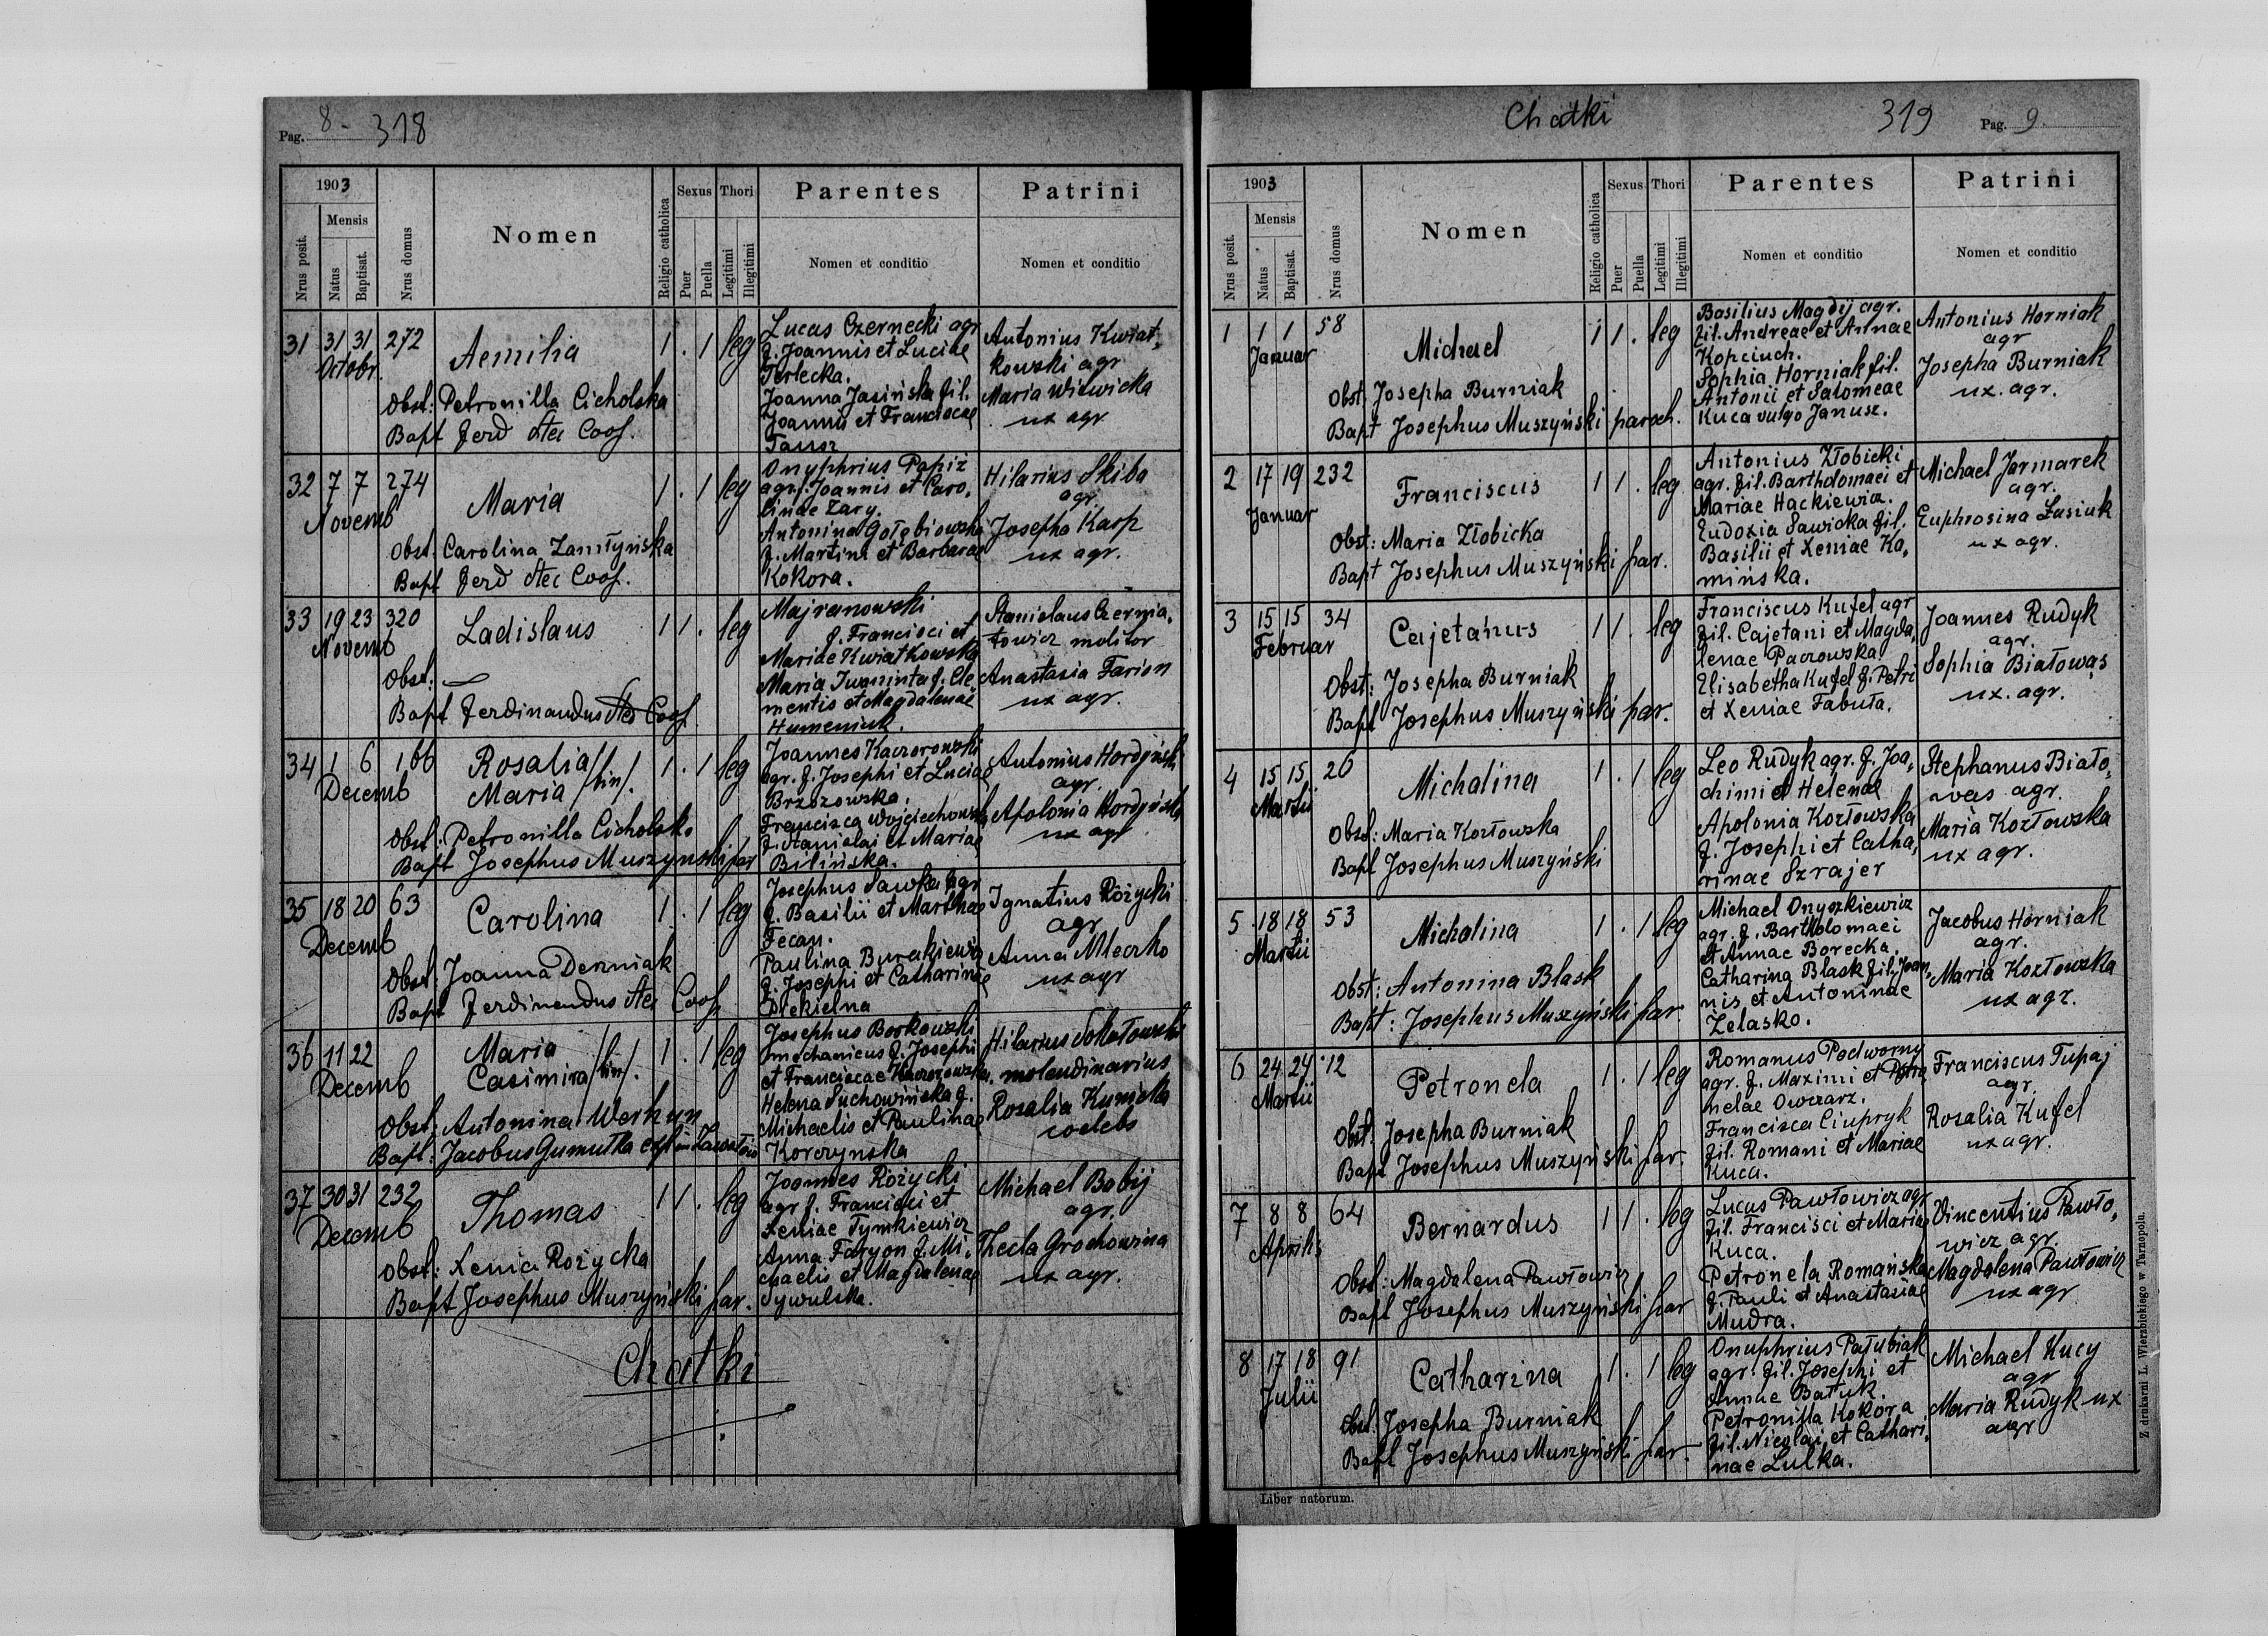 Pag. 8 - 318
1903
Nrus posit.
Mensis
Natus
Baptisat.
Nrus domus
Nomen
Religio catholica
Sexus
Puer
Puella
Thori
Legitimi
Illegitimi
Parentes
Nomen et conditio
Patrini
Nomen et conditio
31 31 31 272 Aemilia 1 . 1 leg
Octobr.
Obst: Petronilla Cicholska
Bapt Ferd Coop.
Lucas Czernecki agr
f. Joannis et Luciae
Terlecka.
Joanna Jasińska fil.
Joannis et Franciscae
Antonius Kwiat,
kowski agr
Maria Witwicka
ux agr
32 7 7 274 Maria 1 . 1 leg
Novemb
Obst. Carolina
Bapt Ferd Coop.
Onyphrius Papiż
agr. f. Joannis et Caro,
linae Zary.
Antonina Gołębiowska
f. Martini et Barbarae
Kokora.
Hilarius Skiba
agr.
Josepha Karp
ux agr.
33 19 23 320 Ladislaus 1 1 . leg
Novemb
Obst: —
Bapt Ferdinandus Coop.
Majranowski
f. Francisci et
Mariae Kwiatkowska
Maria Iwaninta f. Cle
mentis et Magdalenae
Humeniuk.
Stanislaus Czernia,
towicz molitor
Anastasia Farion
ux agr.
34 1 6 166 Rosalia 1 . 1 leg
Decemb Maria /bin/.
Obst: Petronilla Cicholska
Bapt Josephus Muszynski par
Joannes Kaczorowski
agr. f. Josephi et Luciae
Brzozowska.
Francisca Wojciechowska
f. Stanislai et Mariae
Bilińska.
Antonius Hordyński
agr.
Apolonia Hordyńska
ux agr
35 18 20 63 Carolina 1 . 1 leg
Decemb
Obst: Joanna Derzniak
Bapt Ferdinandus Coop.
Josephus Sawka agr
f. Basilii et Marthae
Fecan.
Paulina Burakiewicz
f. Josephi et Catharinae
Piekielna
Ignatius Różycki
agr
Anna Mleczko
ux agr
36 11 22 Maria 1 . 1 leg
Decemb Casimira /bin/.
Obst: Antonina Werhun
Bapt: Jacobus Gumułka
Josephus Borkowski
mechanicus f. Josephi
et Franciscae Kaczorowska.
Helena Suchowińska f.
Michaelis et Paulinae
Korczynska
Hilarius Sokołowski
molendinarius
Rosalia Kunicka
coelebs
37 30 31 232 Thomas 1 1 . leg
Decemb
Obst: Xenia Różycka
Bapt Josephus Muszyński par.
Joannes Różycki
agr f. Francisci et
Xeniae Tymkiewicz
Anna Faryon f. Mi,
chaelis et Magdalenae
Sywulska.
Michael Bobij
agr.
Thecla Grochowina
ux agr.
Chatki
Chatki 319 Pag. 9.
1903
Nrus posit.
Mensis
Natus
Baptisat.
Nrus domus
Nomen
Religio catholica
Sexus
Puer
Puella
Thori
Legitimi
Illegitimi
Parentes
Nomen et conditio
Patrini
Nomen et conditio
1 1 1 58 Michael 1 1 . leg
Januar
Obst. Josepha Burniak
Bapt Josephus Muszyński paroch.
Basilius Magdij agr.
fil. Andreae et Annae
Kopciuch.
Sophia Horniak fil.
Antonii et Salomeae
Kuca vulgo Janusz.
Antonius Horniak
agr
Josepha Burniak
ux. agr.
2 17 19 232 Franciscus 1 1 . leg
Januar
Obst: Maria Złobicka
Bapt Josephus Muszyński par.
Antonius Złobicki
agr. fil. Bartholomaei et
Mariae Hackiewicz.
Eudoxia Sawicka fil.
Basilii et Xeniae Ka,
mińska.
Michael Jarmarek
agr.
Euphrosina Łasiuk
ux agr.
3 15 15 34 Cajetanus 1 1 . leg
Februar
Obst: Josepha Burniak
Bapt Josephus Muszyński par.
Franciscus Kufel agr
fil. Cajetani et Magda,
lenae Paczowska.
Elisabetha Kufel f. Petri
et Xeniae Fabuła.
Joannes Rudyk
agr.
Sophia Białowąs
ux. agr.
4 15 15 26 Michalina 1 . 1 leg
Martii
Obst: Maria Kozłowska
Bapt Josephus Muszyński
Leo Rudyk agr. f. Joa,
chimi et Helenae
Apolonia Kozłowska
f. Josephi et Catha,
rinae Szrajer
Stephanus Biało,
wąs agr.
Maria Kozłowska
ux agr.
5 18 18 53 Michalina 1 . 1 leg
Martii
Obst: Antonina Blask
Bapt: Josephus Muszyński par.
Michael Onyszkiewicz
agr. f. Bartholomaei
et Annae Borecka.
Catharina Blask fil. Joan,
nis et Antoninae
Żelasko.
Jacobus Horniak
agr.
Maria Kozłowska
ux agr.
6 24 24 12 Petronela 1 . 1 leg
Martii
Obst. Josepha Burniak
Bapt Josephus Muszyński par.
Romanus Podworny
agr. f. Maximi et Petro,
nelae Owczarz.
Francisca Ciupryk
fil. Romani et Mariae
Kuca.
Franciscus Tupaj
agr.
Rosalia Kufel
ux agr.
7 8 8 64 Bernardus 1 1 . leg
Aprilis
Obst: Magdalena Pawłowicz
Bapt Josephus Muszyński par
Lucas Pawłowicz agr
fil. Francisci et Mariae
Kuca.
Petronela Romańska
f. Pauli et Anastasiae
Mudra.
Vincentius Pawło,
wicz agr.
Magdalena Pawłowicz
ux agr
8 17 18 91 Catharina 1 . 1 leg
Julii
Obst: Josepha Burniak
Bapt Josephus Muszyński par.
Onuphrius Pałubiak
agr. fil. Josephi et
Annae Bałuk.
Petronilla Kokora
fil. Nicolai et Cathari,
nae Lulka.
Michael Kucy
agr
Maria Rudyk ux
agr
Liber natorum.
Z drukarni L. Wierzbickiego w Tarnopolu.